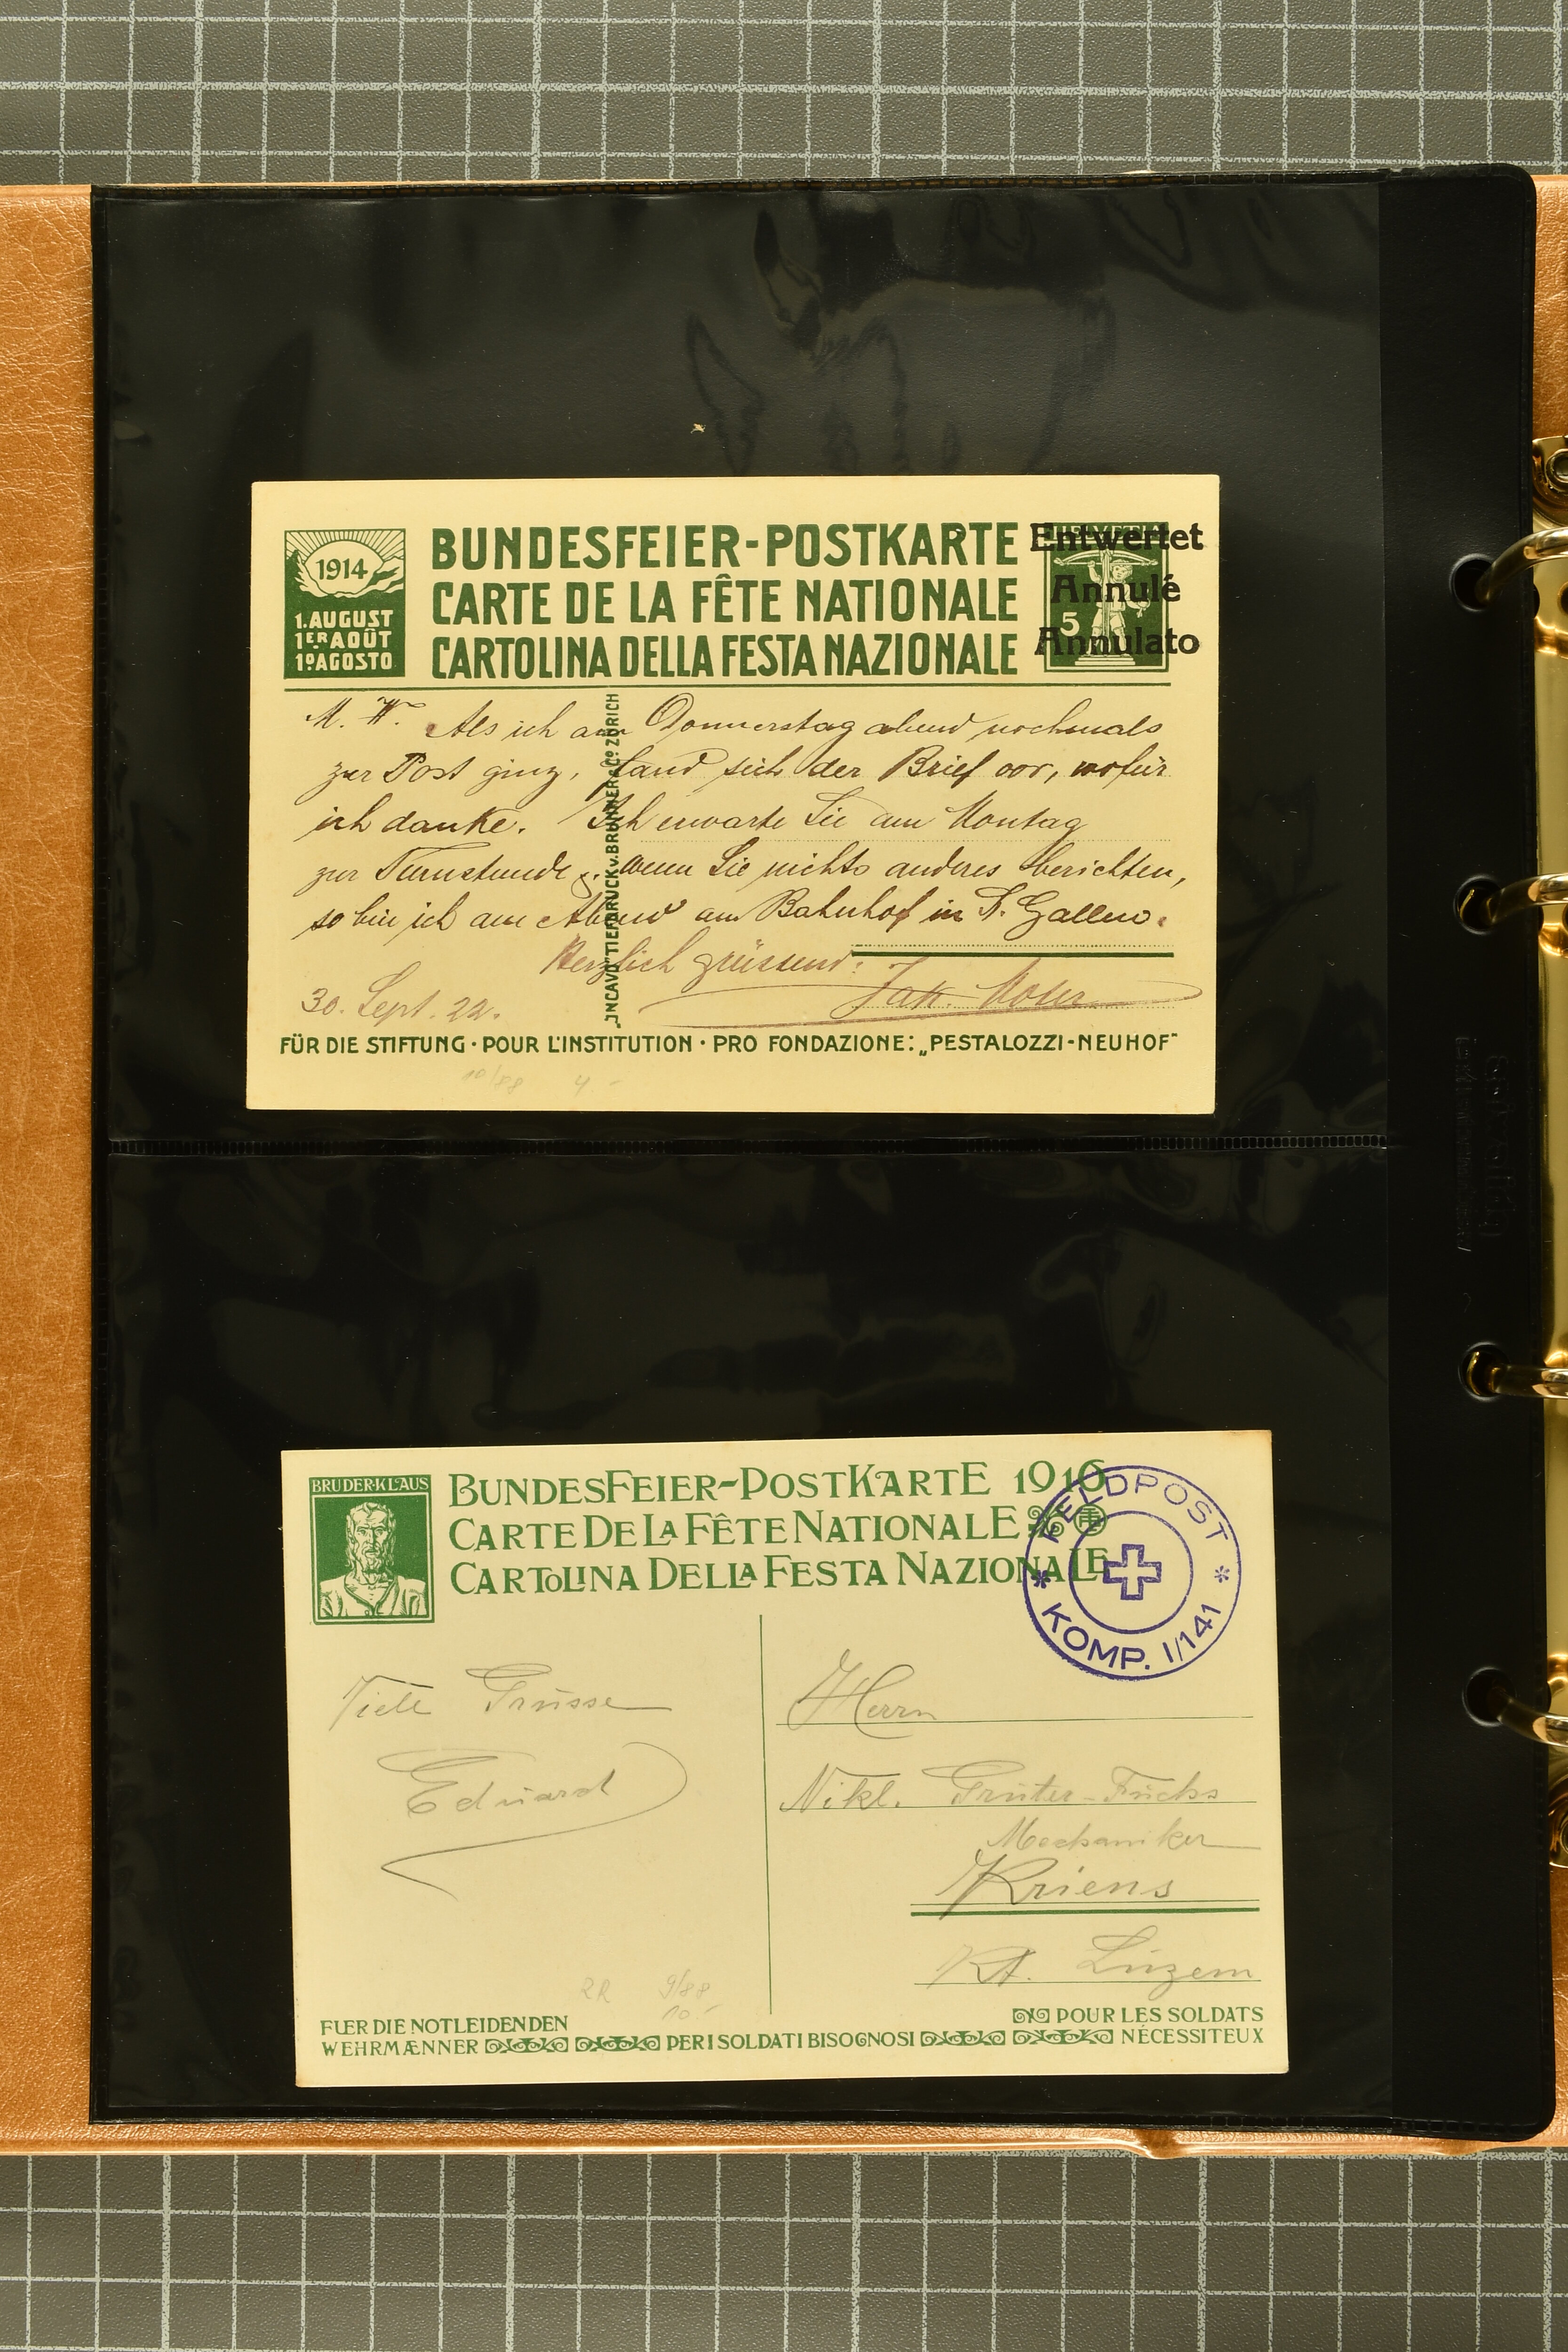 1914
1. AUGUST
1ER AOÛT
1º AGOSTO
BUNDESFEIER-POSTKARTE
CARTE DE LA FÊTE NATIONALE
CARTOLINA DELLA FESTA NAZIONALE
HELVETIA
5
Entwertet
Annulé
Annulato
M. W. Als ich am Donnerstag abend nochmals
zur Post ging, fand sich der Brief vor, wofür
ich danke. Ich erwarte Sie am Montag
zur Turnstunde, wenn Sie nichts anderes berichten,
so bin ich am Abend am Bahnhof in St. Gallen.
Herzlich grüssend:
30. Sept. 22. Jak. Moser
"INCAVO" TIEFDRUCK v. BRUNNER & Cº. ZÜRICH
FÜR DIE STIFTUNG · POUR L'INSTITUTION · PRO FONDAZIONE: „PESTALOZZI-NEUHOF"
10/88 4.-
BRUDER·KLAUS
BUNDESFEIER-POSTKARTE 1916
CARTE DE LA FÊTE NATIONALE
CARTOLINA DELLA FESTA NAZIONALE
* FELDPOST *
KOMP. I/141
Viele Grüsse
Eduard
Herrn
Nikl. Gruter-Fuchs
Mechaniker
Kriens
Kt. Luzern
2R 9/88
10.-
FUER DIE NOTLEIDENDEN
WEHRMÆNNER PER I SOLDATI BISOGNOSI
POUR LES SOLDATS
NÉCESSITEUX